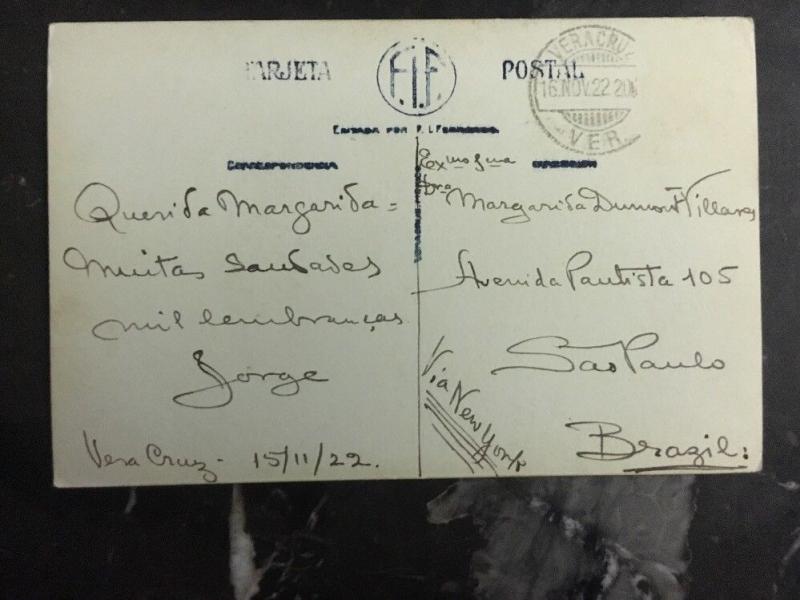 TARJETA
F.I.F.
POSTAL
VERACRUZ
16.NOV.22.20
VER.
EDITADA POR F. I. FERNANDEZ.
CORRESPONDENCIA
DIRECCION
Querida Margarida =
Muitas Saudades
mil lembranças
Jorge
Vera Cruz - 15/11/22.
Exmo Sma
Dra
Margarida Dumont Villares
Avenida Pautista 105
São Paulo
Via New York
Brazil: